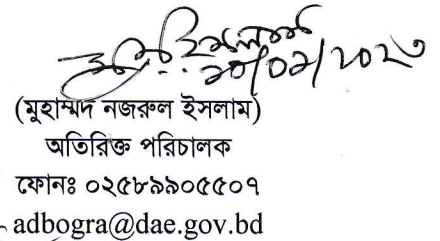 (মুহাম্মদ নজরুল ইসলাম)
অতিরিক্ত পরিচালক
ফোনঃ ০২৫৮৯৯০৫৫০৭
adbogra@dae.gov.bd